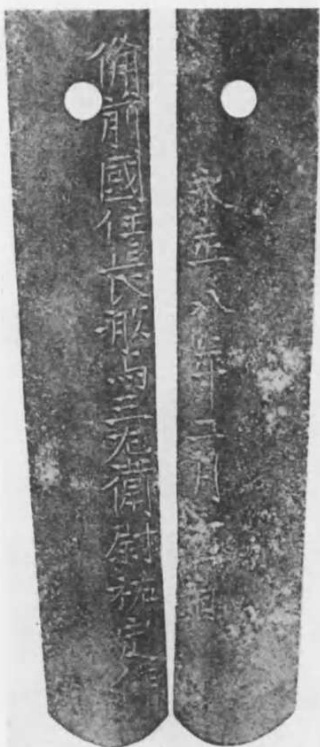 備前國住長船与三左衛門尉祐定作
永正八年二月吉日